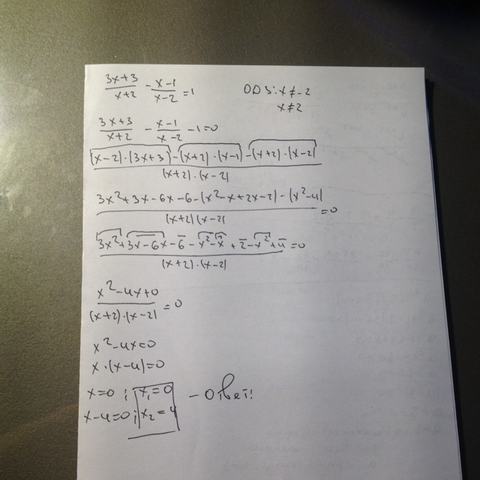 (3x+3)/(x+2) - (x-1)/(x-2) = 1 ОДЗ: x≠-2
x≠2
(3x+3)/(x+2) - (x-1)/(x-2) - 1 = 0
((x-2)·(3x+3) - (x+2)·(x-1) - (x+2)·(x-2))/((x+2)·(x-2))
(3x²+3x-6x-6-(x²-x+2x-2)-(x²-4))/((x+2)(x-2)) = 0
(3x²+3x-6x-6-x²-x+2-x²+4)/((x+2)·(x-2)) = 0
(x²-4x+0)/((x+2)·(x-2)) = 0
x²-4x=0
x·(x-4)=0
x=0 ; x₁=0 - Ответ!
x-4=0; x₂=4